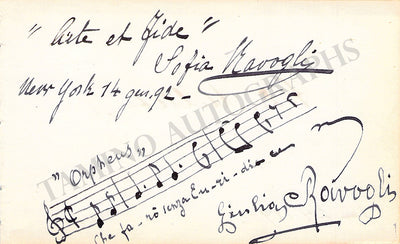 "Arte et Fide"
Sofia Ravogli
New York 14 gen. 92 -
"Orpheus"
Che fa-rò senza Eu-ri-di-ce
Giulia Ravogli
TAMINO AUTOGRAPHS